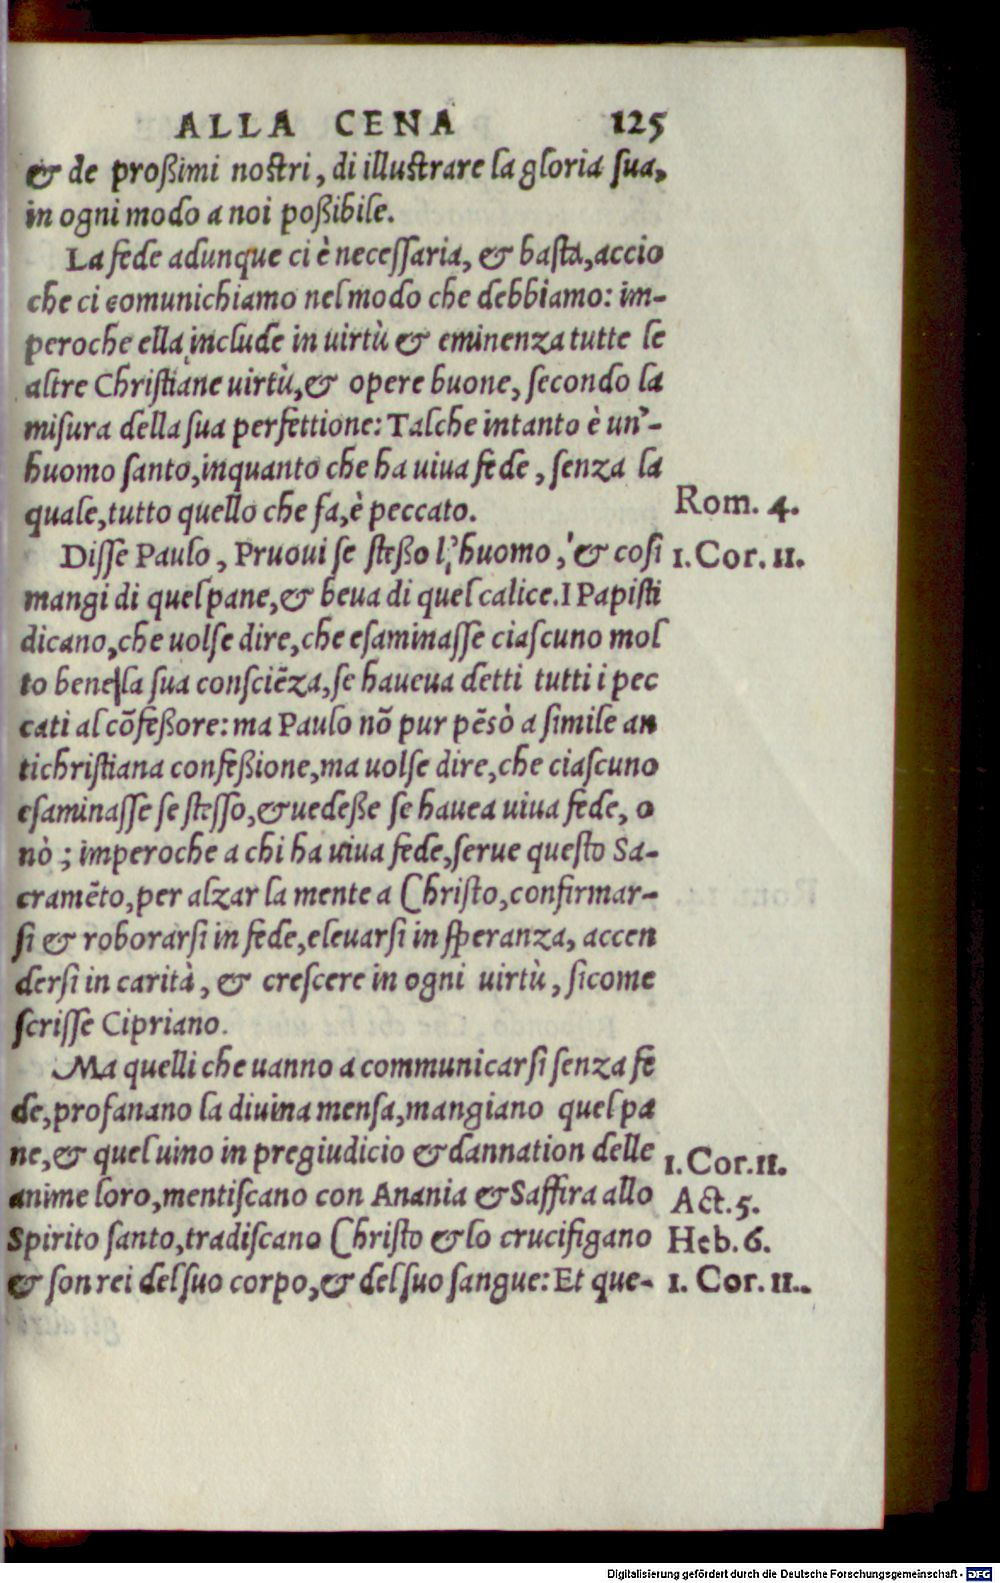 ALLA CENA 125
& de proßimi nostri, di illustrare la gloria sua,
in ogni modo a noi poßibile.
La fede adunque ci è necessaria, & basta, accio
che ci comunichiamo nel modo che debbiamo: im-
peroche ella include in virtù & eminenza tutte le
altre Christiane virtù, & opere buone, secondo la
misura della sua perfettione: Talche intanto è un'-
huomo santo, inquanto che ha viva fede, senza la
quale, tutto quello che fa, è peccato. Rom. 4.
Disse Paulo, Pruovi se steßo l'huomo, & cosi 1. Cor. 11.
mangi di quel pane, & beva di quel calice. I Papisti
dicano, che uolse dire, che esaminasse ciascuno mol
to bene la sua consciẽza, se haueua detti tutti i pec
cati al cõfeßore: ma Paulo nõ pur pẽsò a simile an
tichristiana confeßione, ma uolse dire, che ciascuno
esaminasse se stesso, & uedeße se hauea uiua fede, o
nò; imperoche a chi ha uiua fede, serue questo Sa-
cramẽto, per alzar la mente a Christo, confirmar-
si & roborarsi in fede, eleuarsi in speranza, accen
dersi in carità, & crescere in ogni virtù, sicome
scrisse Cipriano.
Ma quelli che uanno a communicarsi senza fe
de, profanano la diuina mensa, mangiano quel pa
ne, & quel uino in pregiudicio & dannation delle 1. Cor. 11.
anime loro, mentiscano con Anania & Saffira allo Act. 5.
Spirito santo, tradiscano Christo & lo crucifigano Heb. 6.
& son rei del suo corpo, & del suo sangue: Et que- 1. Cor. 11..
Digitalisierung gefördert durch die Deutsche Forschungsgemeinschaft - DFG